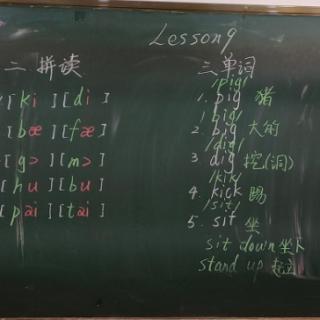 Lesson 9
二 拼读
[ki] [di]
[bæ] [fæ]
[gɔ] [mɔ]
[hu] [bu]
[pai] [tai]
三 单词
/pig/
1. pig 猪
/big/
2. big 大的
/dig/
3 dig 挖(洞)
/kik/
4. kick 踢
/sit/
5. sit 坐
sit down 坐下
stand up 起立